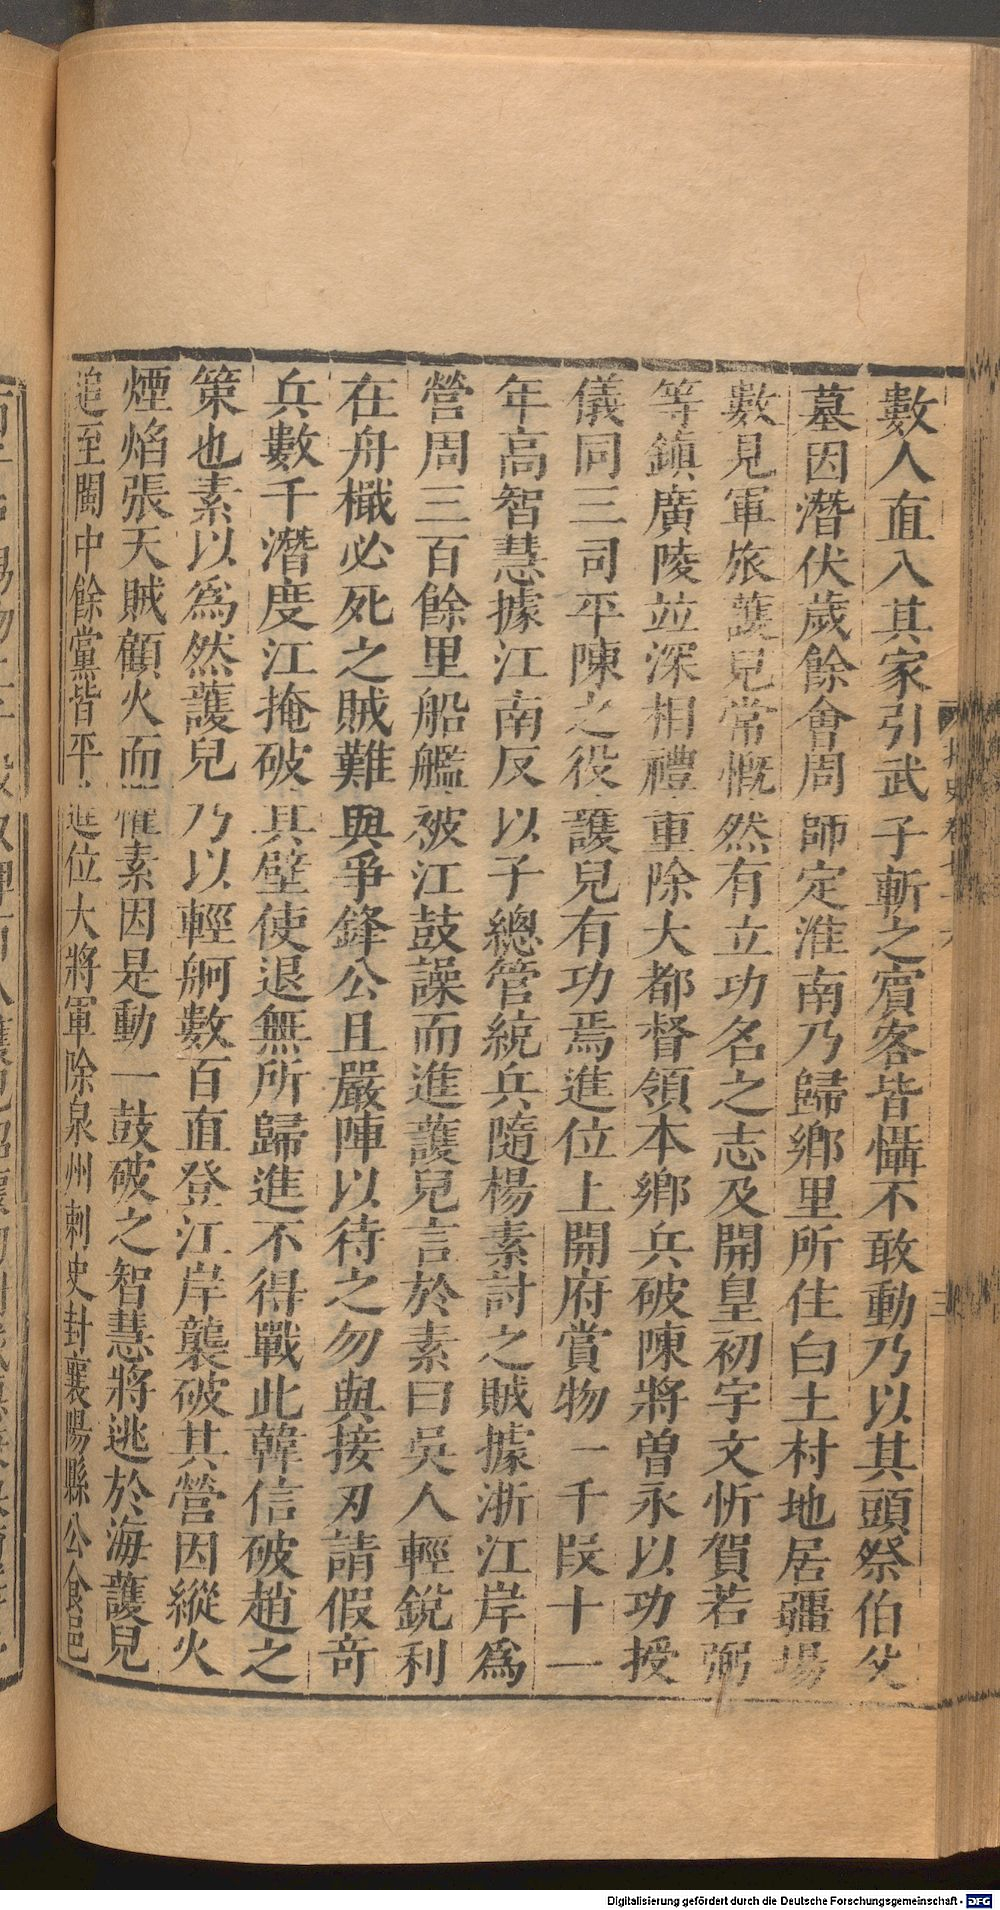 數人直入其家引武子斬之賓客皆懾不敢動乃以其頭祭伯父
墓因潛伏歲餘會周師定淮南乃歸鄉里所住白土村地居疆場
數見軍旅護兒常慨然有立功名之志及開皇初宇文忻賀若弼
等鎮廣陵並深相禮重除大都督領本鄉兵破陳將曾永以功授
儀同三司平陳之役護兒有功焉進位上開府賞物一千段十一
年高智慧據江南反以子總管統兵隨楊素討之賊據浙江岸為
營周三百餘里船艦被江鼓譟而進護兒言於素曰吳人輕銳利
在舟檝必死之賊難與爭鋒公且嚴陣以待之勿與接刃請假奇
兵數千潛度江掩破其壁使退無所歸進不得戰此韓信破趙之
策也素以為然護兒乃以輕舸數百直登江岸襲破其營因縱火
煙焰張天賊顧火而懼素因是動一鼓破之智慧將逃於海護兒
追至閩中餘黨皆平進位大將軍除泉州刺史封襄陽縣公食邑
Digitalisierung gefördert durch die Deutsche Forschungsgemeinschaft - DFG